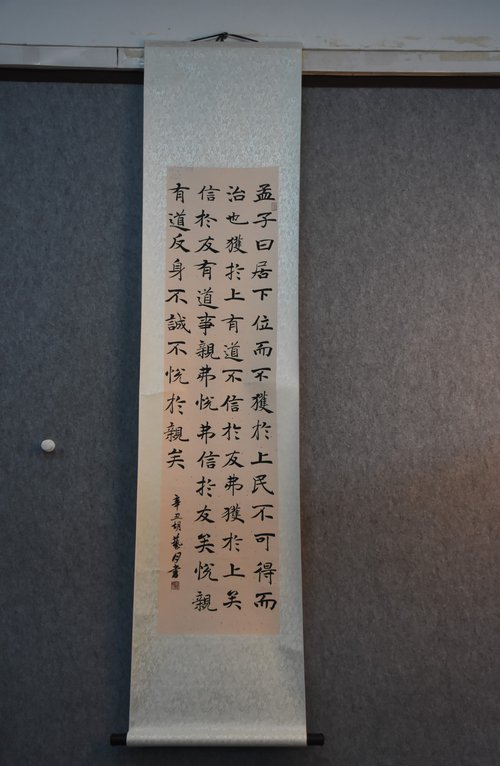 孟子曰居下位而不獲於上民不可得而
治也獲於上有道不信於友弗獲於上矣
信於友有道事親弗悅弗信於友矣悅親
有道反身不誠不悅於親矣
辛丑胡藝丹書